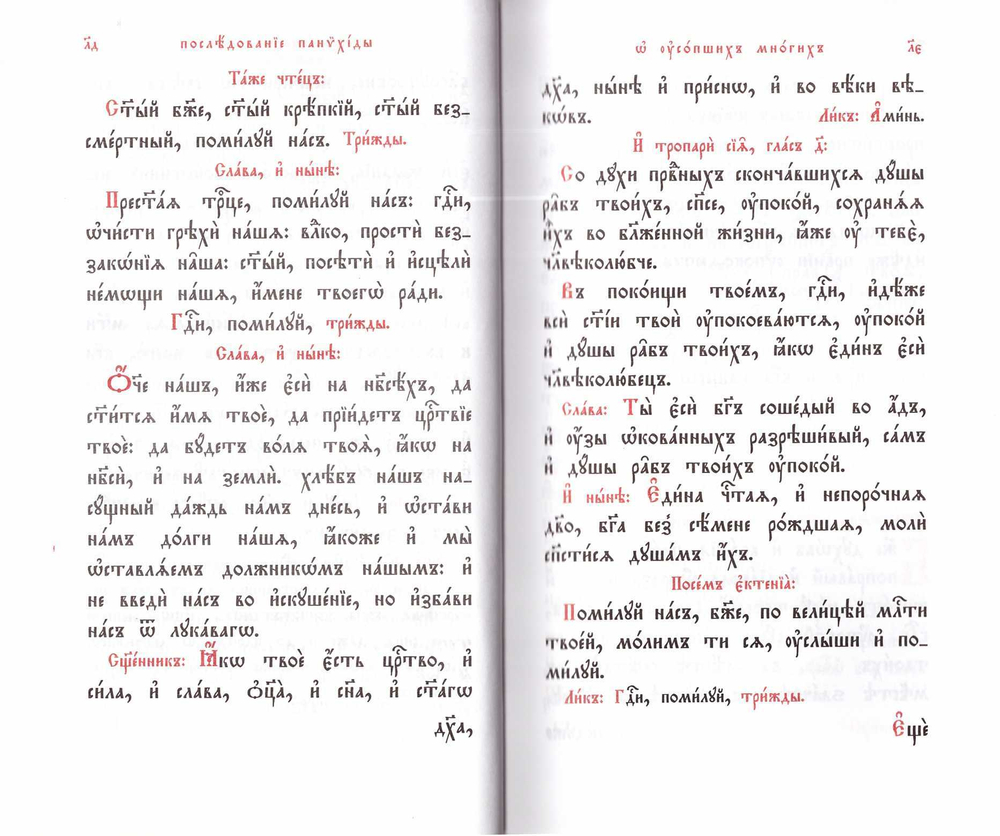 л҃д
послѣ́дованїе панѷхі́ды
Та́же чте́цъ:
Ст҃ы́й бж҃е, ст҃ы́й крѣ́пкїй, ст҃ы́й без-
сме́ртный, поми́лꙋй на́съ. Три́жды.
Сла́ва, и҆ ны́нѣ:
Прест҃а́ѧ трⷪ҇це, поми́лꙋй на́съ: гдⷭ҇и,
ѡ҆чи́сти грѣхѝ на́шѧ: влⷣко, простѝ без-
закѡ́нїѧ на̑ша: ст҃ы́й, посѣтѝ и҆ и҆сцѣлѝ
не́мѡщи на́шѧ, и҆́мене твоегѡ̀ ра́ди.
Гдⷭ҇и, поми́лꙋй, три́жды.
Сла́ва, и҆ ны́нѣ:
Ѻ҆́ч҃е на́шъ, и҆́же є҆сѝ на нб҃сѣ́хъ, да
ст҃и́тсѧ и҆́мѧ твоѐ, да прїи́детъ црⷭ҇твїе
твоѐ: да бꙋ́детъ во́лѧ твоѧ̀, ꙗ҆́кѡ на
нб҃сѝ, и҆ на землѝ. хлѣ́бъ на́шъ на-
сꙋ́щный да́ждь на́мъ дне́сь, и҆ ѡ҆ста́ви
на́мъ до́лги на́шѧ, ꙗ҆́коже и҆ мы̀
ѡ҆ставлѧ́емъ должникѡ́мъ на́шымъ: и҆
не введѝ на́съ во и҆скꙋше́нїе, но и҆зба́ви
на́съ ѿ лꙋка́вагѡ.
Сщ҃е́нникъ: Ꙗ҆́кѡ твоѐ є҆́сть црⷭ҇тво, и҆
си́ла, и҆ сла́ва, ѻ҆ц҃а̀, и҆ сн҃а, и҆ ст҃а́гѡ
дх҃а,
ѡ҆ ᲂу҆со́пшихъ мно́гихъ
л҃є
дх҃а, ны́нѣ и҆ при́снѡ, и҆ во вѣ́ки вѣ-
кѡ́въ.
Ли́къ: А҆ми́нь.
И҆ тропарѝ сїѧ̑, гла́съ д҃:
Со дꙋ́хи првⷣныхъ сконча́вшихсѧ дꙋ́шы
ра̑бъ твои́хъ, сп҃се, ᲂу҆поко́й, сохранѧ́ѧ
и҆̀хъ во бл҃же́нной жи́зни, ꙗ҆́же ᲂу҆ тебє̀,
чл҃вѣколю́бче.
Въ поко́ищи твое́мъ, гдⷭ҇и, и҆дѣ́же
всѝ ст҃і́и твоѝ ᲂу҆покоева́ютсѧ, ᲂу҆поко́й
и҆ дꙋ́шы ра̑бъ твои́хъ, ꙗ҆́кѡ є҆ди́нъ є҆сѝ
чл҃вѣколю́бецъ.
Сла́ва: Ты̀ є҆сѝ бг҃ъ соше́дый во а҆́дъ,
и҆ ᲂу҆́зы ѡ҆кова́нныхъ разрѣши́вый, са́мъ
и҆ дꙋ́шы ра̑бъ твои́хъ ᲂу҆поко́й.
И҆ ны́нѣ: Є҆ди́на чⷭ҇таѧ, и҆ непоро́чнаѧ
дв҃о, бг҃а без̾ сѣ́мене ро́ждшаѧ, молѝ
сп҃сти́сѧ дꙋша́мъ и҆́хъ.
Посе́мъ є҆ктенїа̀:
Поми́лꙋй на́съ, бж҃е, по вели́цѣй млⷭ҇ти
твое́й, мо́лимъ ти сѧ, ᲂу҆слы́ши и҆ по-
ми́лꙋй.
Ли́къ: Гдⷭ҇и, поми́лꙋй, три́жды.
Є҆щѐ